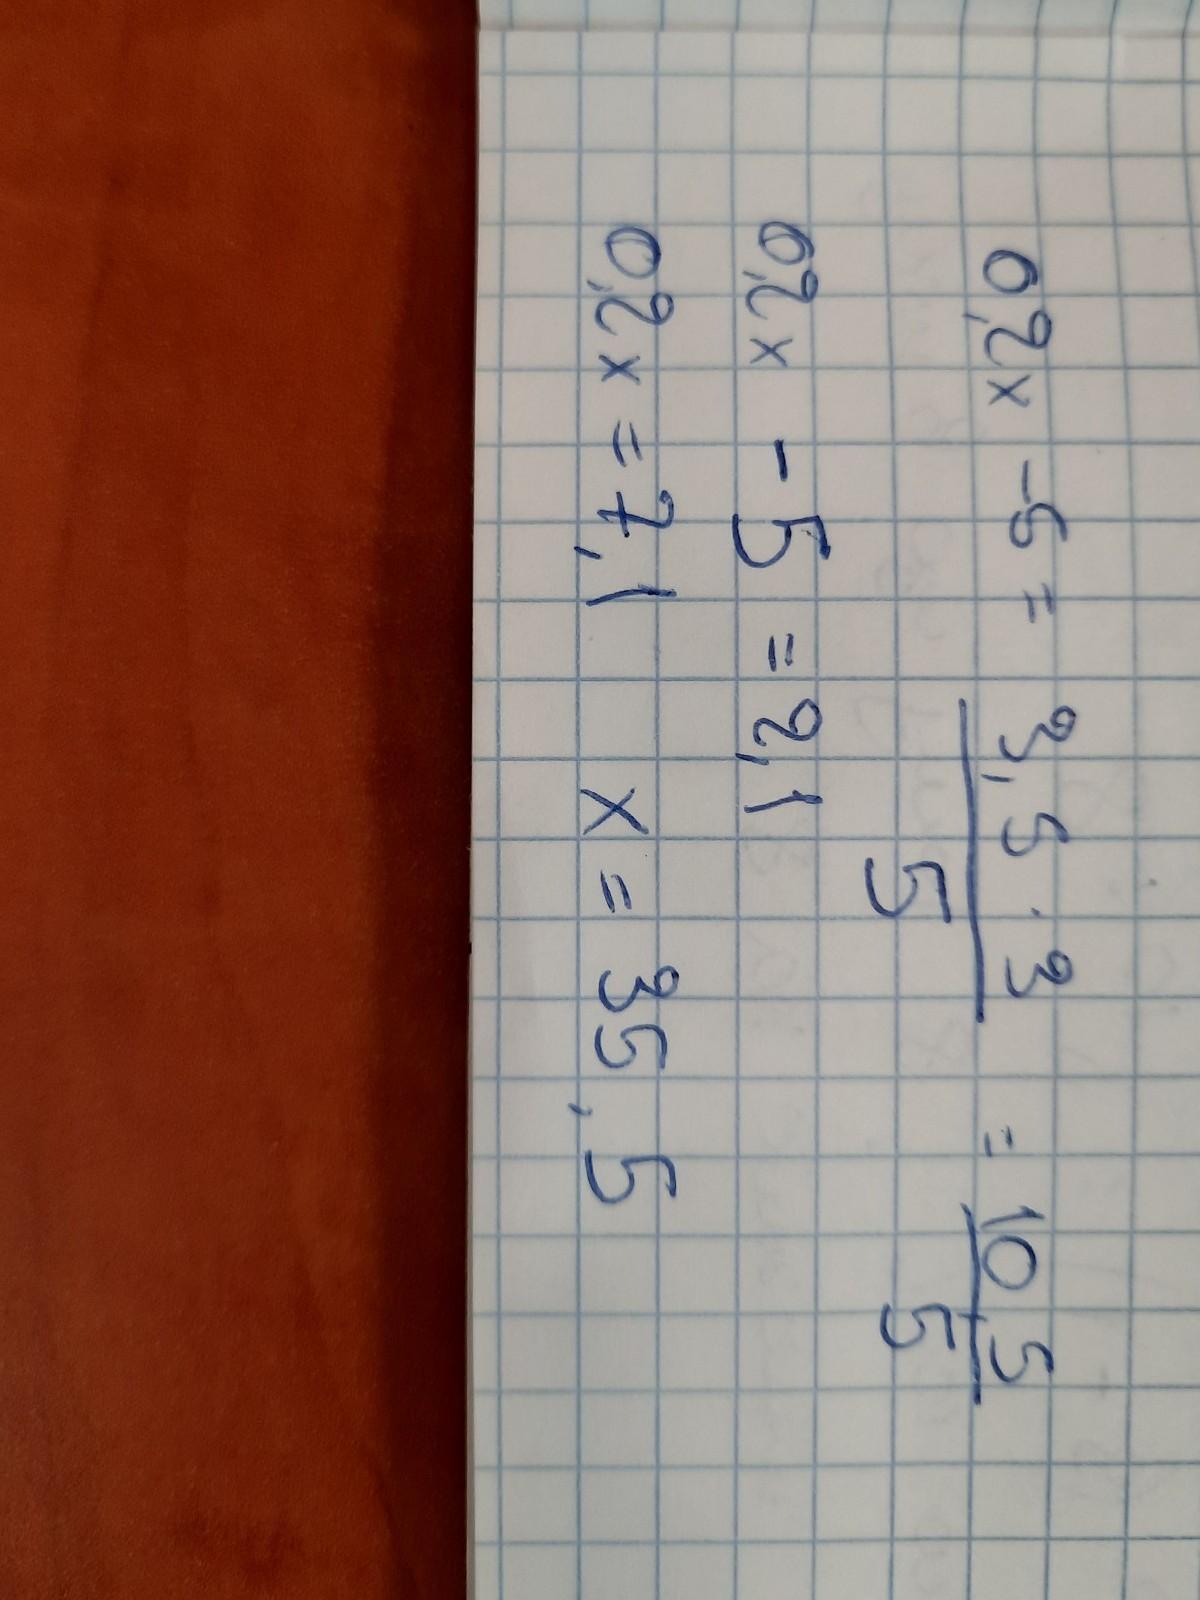 0,2x - 5 = 3,5 · 3 / 5 = 10 5 / 5
0,2x - 5 = 2,1
0,2x = 7,1 x = 35,5